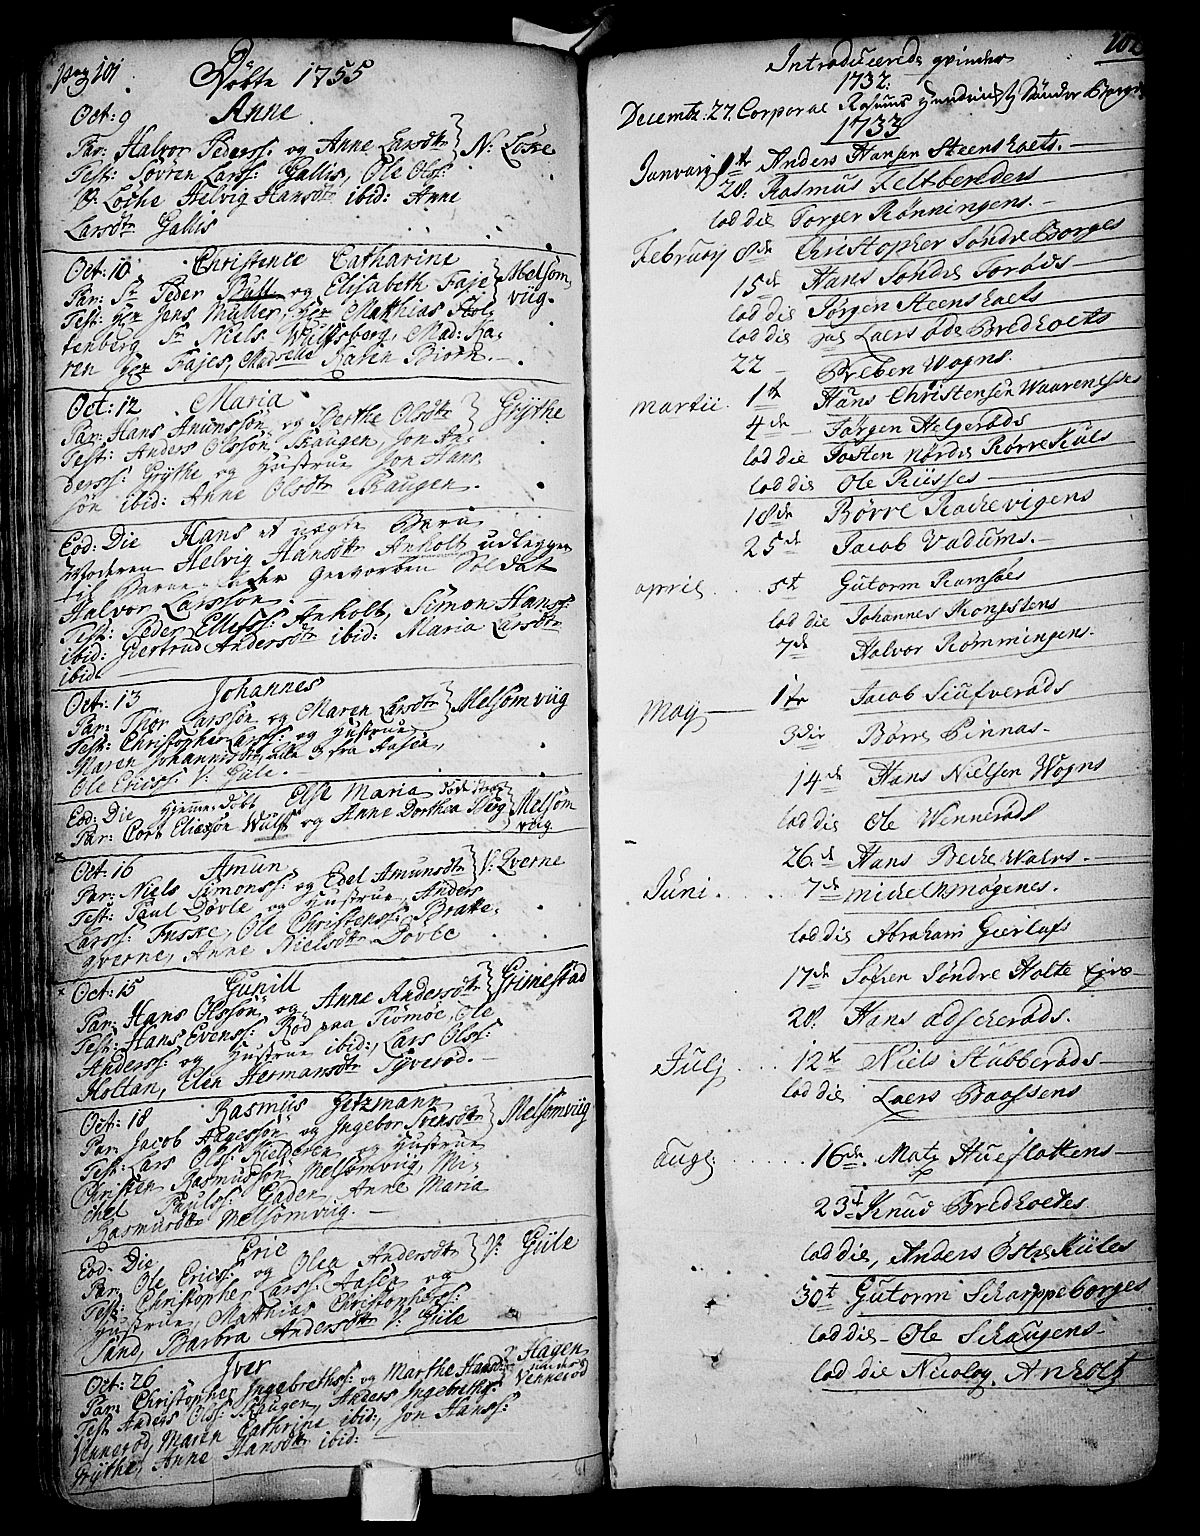 pag 101
Döbte 1755
Oct: 9 Anne
Par: Halvor Pederss: og Anne Larsdtr } N: Löcke
Test: Sövren Larss: Gallis, Ole Olss:
V: Löche Helvig Hansdtr ibid: Anne
Larsdtr Gallis
Oct: 10 Christence Catharine
Par: Sr Peder Bull og Elisabeth Faje } Melsom
Test: Hr Jens Müller, Hr Matthias Stol viig.
tenberg Sr Niels Wulfsberg, Mad: Ka-
ren Hr Fajes, Madselle Karen Biörn.
Oct: 12 Maria
Par: Hans Amunssön og Berthe Olsdtr } Grÿthe
Test: Anders Olssön Skaugen, Jon An-
derss: Grÿthe og Hustrue Jon Hans
sön ibid: Anne Olsdtr Skaugen.
Eod: Die Hans et uægte Barn
Moderen Helvig Hansdtr Anholt udlegger
til Barne Fader Gevorben Soldat
Halvor Larssön.
Test: Peder Ellefss: Anholt, Simon Hanss:
ibid: Giertrud Andersdtr ibid: Maria Larsdtr
ibid
Oct: 13 Johannes
Par: Thor Larssön og Maren Larsdtr } Melsomviig
Test: Christopher Larss: og Hustrue
Maren Johannisdtr alle 3 fra Aasen,
Ole Ericss: V: Giile.
Eod: Die Hjemme-Döbt Else Maria
Par: Cort Eliesön Wulf og Anne Dorthea Berg } Melsom
viig
Oct: 16 Amun
Par: Niels Simonss: og Edel Amunsdtr } V: Qverne
Test: Paul Dövle og Hustrue, Anders
Larss: Fuske, Ole Christenss: Bratte-
qverne, Anne Nielsdtr Dövle
Oct: 15 Gunill
Par: Hans Olssön og Anne Andersdtr } Grimestad
Test: Hans Evenss: Röd paa Tiömöe, Ole
Anderss: og Hustrue ibid:, Lars Olss:
Holtan, Elen Hermansdtr Tyveröd.
Oct: 18 Rasmus Getzmann
Par: Jacob Aagessön og Ingebor Svensdtr } Melsomviig
Test: Lars Olss: Kielderen og Hustrue
Christen Rasmussön Melsomviig, Mi-
chel Paulss: Gaden, Anne Maria
Rasmusdtr Melsomviig.
Eod: Die: Eric
Par: Ole Ericss: og Olea Andersdtr } V: Giile
Test: Christopher Larss: Aasen og
Hustrue, Matthias Christopherss:
Sand, Barbra Andersdtr V: Giile
Oct: 26 Iver
Par: Christopher Ingebrethss: og Marthe Hansdtr } Hagen
under Vennerod
Test: Anders Olss: Skaugen, Anders Ingebrethss:
Vennerod, Maren Cathrine ibid:, Jon Hanss:
Grÿthe, Anne Hansdtr ibid:
102
Introducerede qvinder
1732.
Decembr: 27. Corporal Rasmus Hendrichs Sönder Borge
1733
Januarij 1te Anders Hansen Steensholts.
20. Rasmus Feltberéders
eod die Torger Rönningens.
February 8de Christopher Söndre Borges
15de Hans Söndre Toröds
eod die Jörgen Steensholts
eod die Laers öde Bredholts
22 Preben Wogns.
Martii. 1te Hans Christensen Waarenesses
4de Jörgen Helgeröds
eod die Josten Nordre Rörrekuls
eod die Ole Riisses
18de Börre Rackevigens
25de Jacob Vadums.
April 5t Gutorm Ramsöes
eod die Johannes Kongstens
7de Halvor Rømmingens.
May 1te Jacob Skufveröds
3die Börre Pinnas.
14de Hans Nielsen Wogns
eod die Ole Winneröds
26de Hans Becke Wahrs.
Juni 7de Mickel Mögenes.
eod die Abraham Gierlufs
17de Sören Söndre Holte
20. Hans Adskeröds.
Julj 12te Niels Stubberöds
eod die Laers Baassens
Augt. 16de. Matz Hueflottens
23de Knud Bredholtes
eod die, Anders Östre Kiiles
30te Gutorm Skarppeborges
eod die Ole Schaugens
eod die Nicolay Anholt